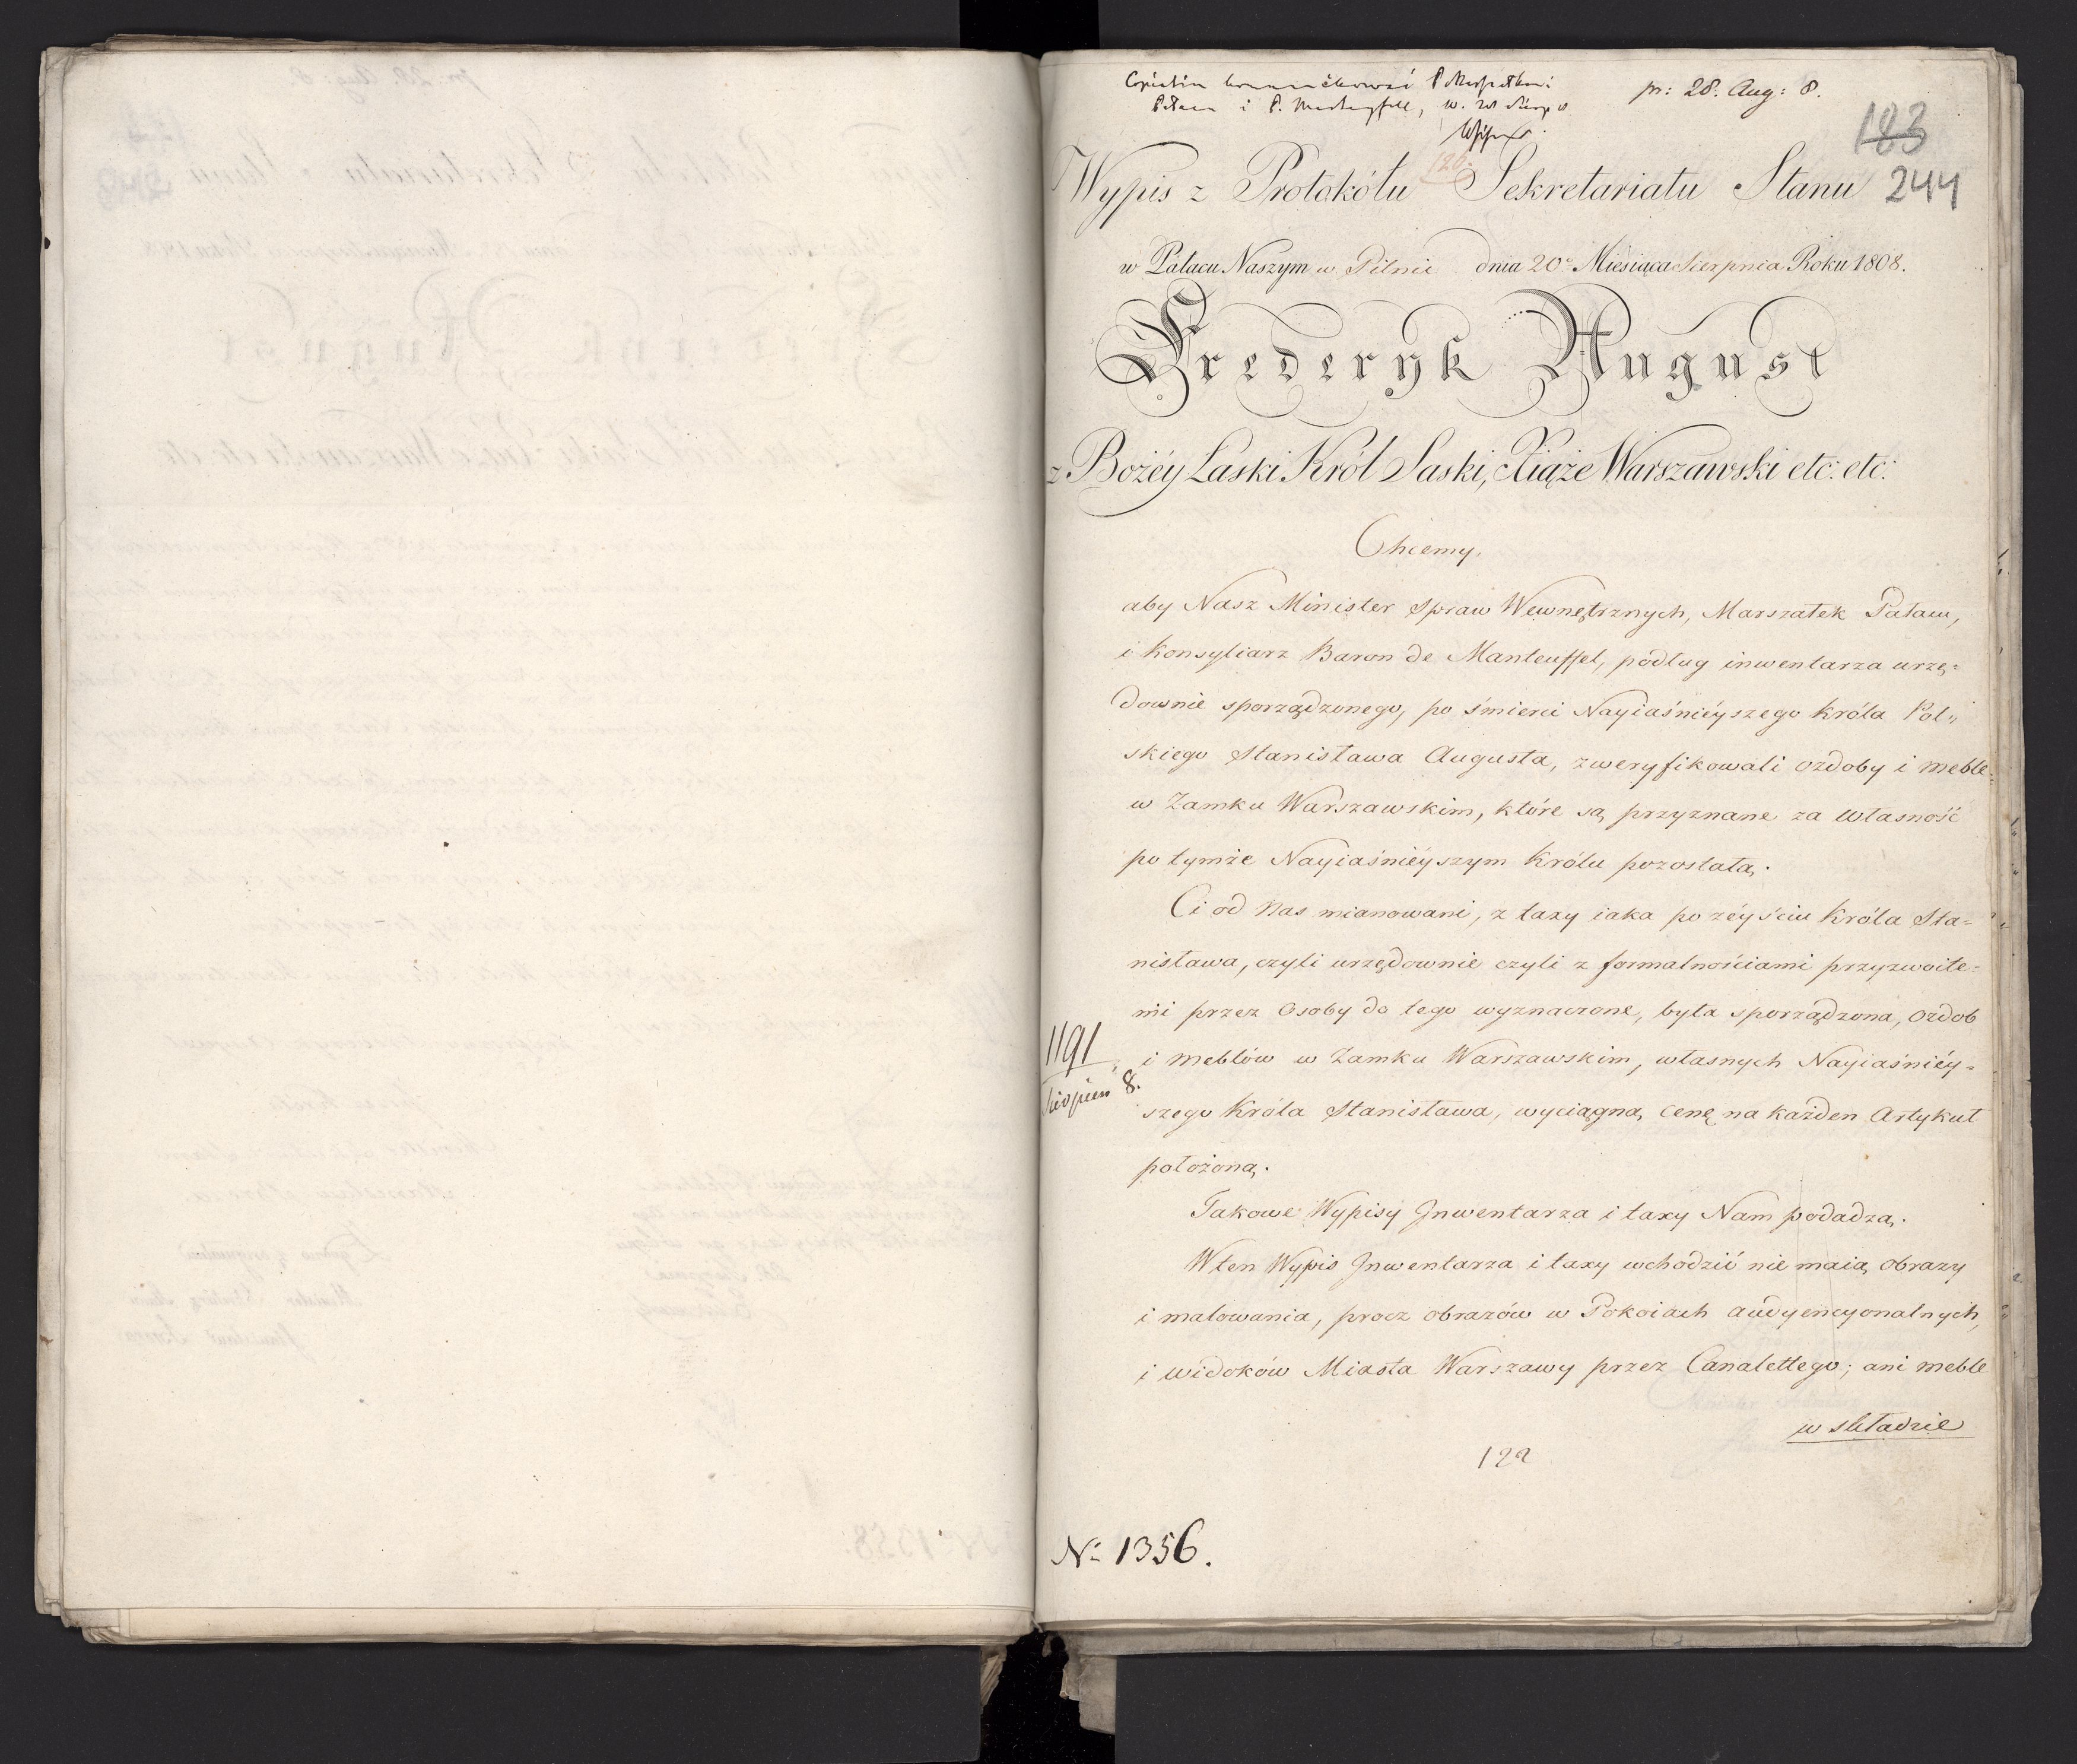 pr: 28. Aug: 8.
183
126.
Wypis z Protokółu Sekretariatu Stanu 244
w Pałacu Naszym w Pilnic dnia 20º Miesiąca Sierpnia Roku 1808.
Frederyk August
z Bożéy Łaski Król Saski, Xiąże Warszawski etc: etc:
Chcemy,
aby Nasz Minister Spraw Wewnętrznych, Marszałek Pałacu,
i Konsyliarz Baron de Manteuffel, podług inwentarza urzę=
downie sporządzonego, po śmierci Nayiaśniéyszego Króla Pol„
skiego Stanisława Augusta, zweryfikowali ozdoby i meble
w Zamku Warszawskim, które są przyznane za własność
po tymże Nayiaśniéyszym Królu pozostałą.
Ci od Nas mianowani, z taxy iaka po zéyściu Króla Sta=
nisława, czyli urzędownie czyli z formalnościami przyzwoite=
mi przez Osoby do tego wyznaczone, była sporządzona, ozdob
i meblów w Zamku Warszawskim, własnych Nayiaśniéy=
szego Króla Stanisława, wyciągną cenę na każden Artykuł
położoną.
1191
Sierpień 8.
Takowe Wypisy Jnwentarza i taxy Nam podadzą.
W ten Wypis Jnwentarza i taxy wchodzić nie maią obrazy
i malowania, procz obrazów w Pokoiach audyencyonalnych,
i widoków Miasta Warszawy przez Canalettego; ani meble
w składzie
122
Nº 1356.